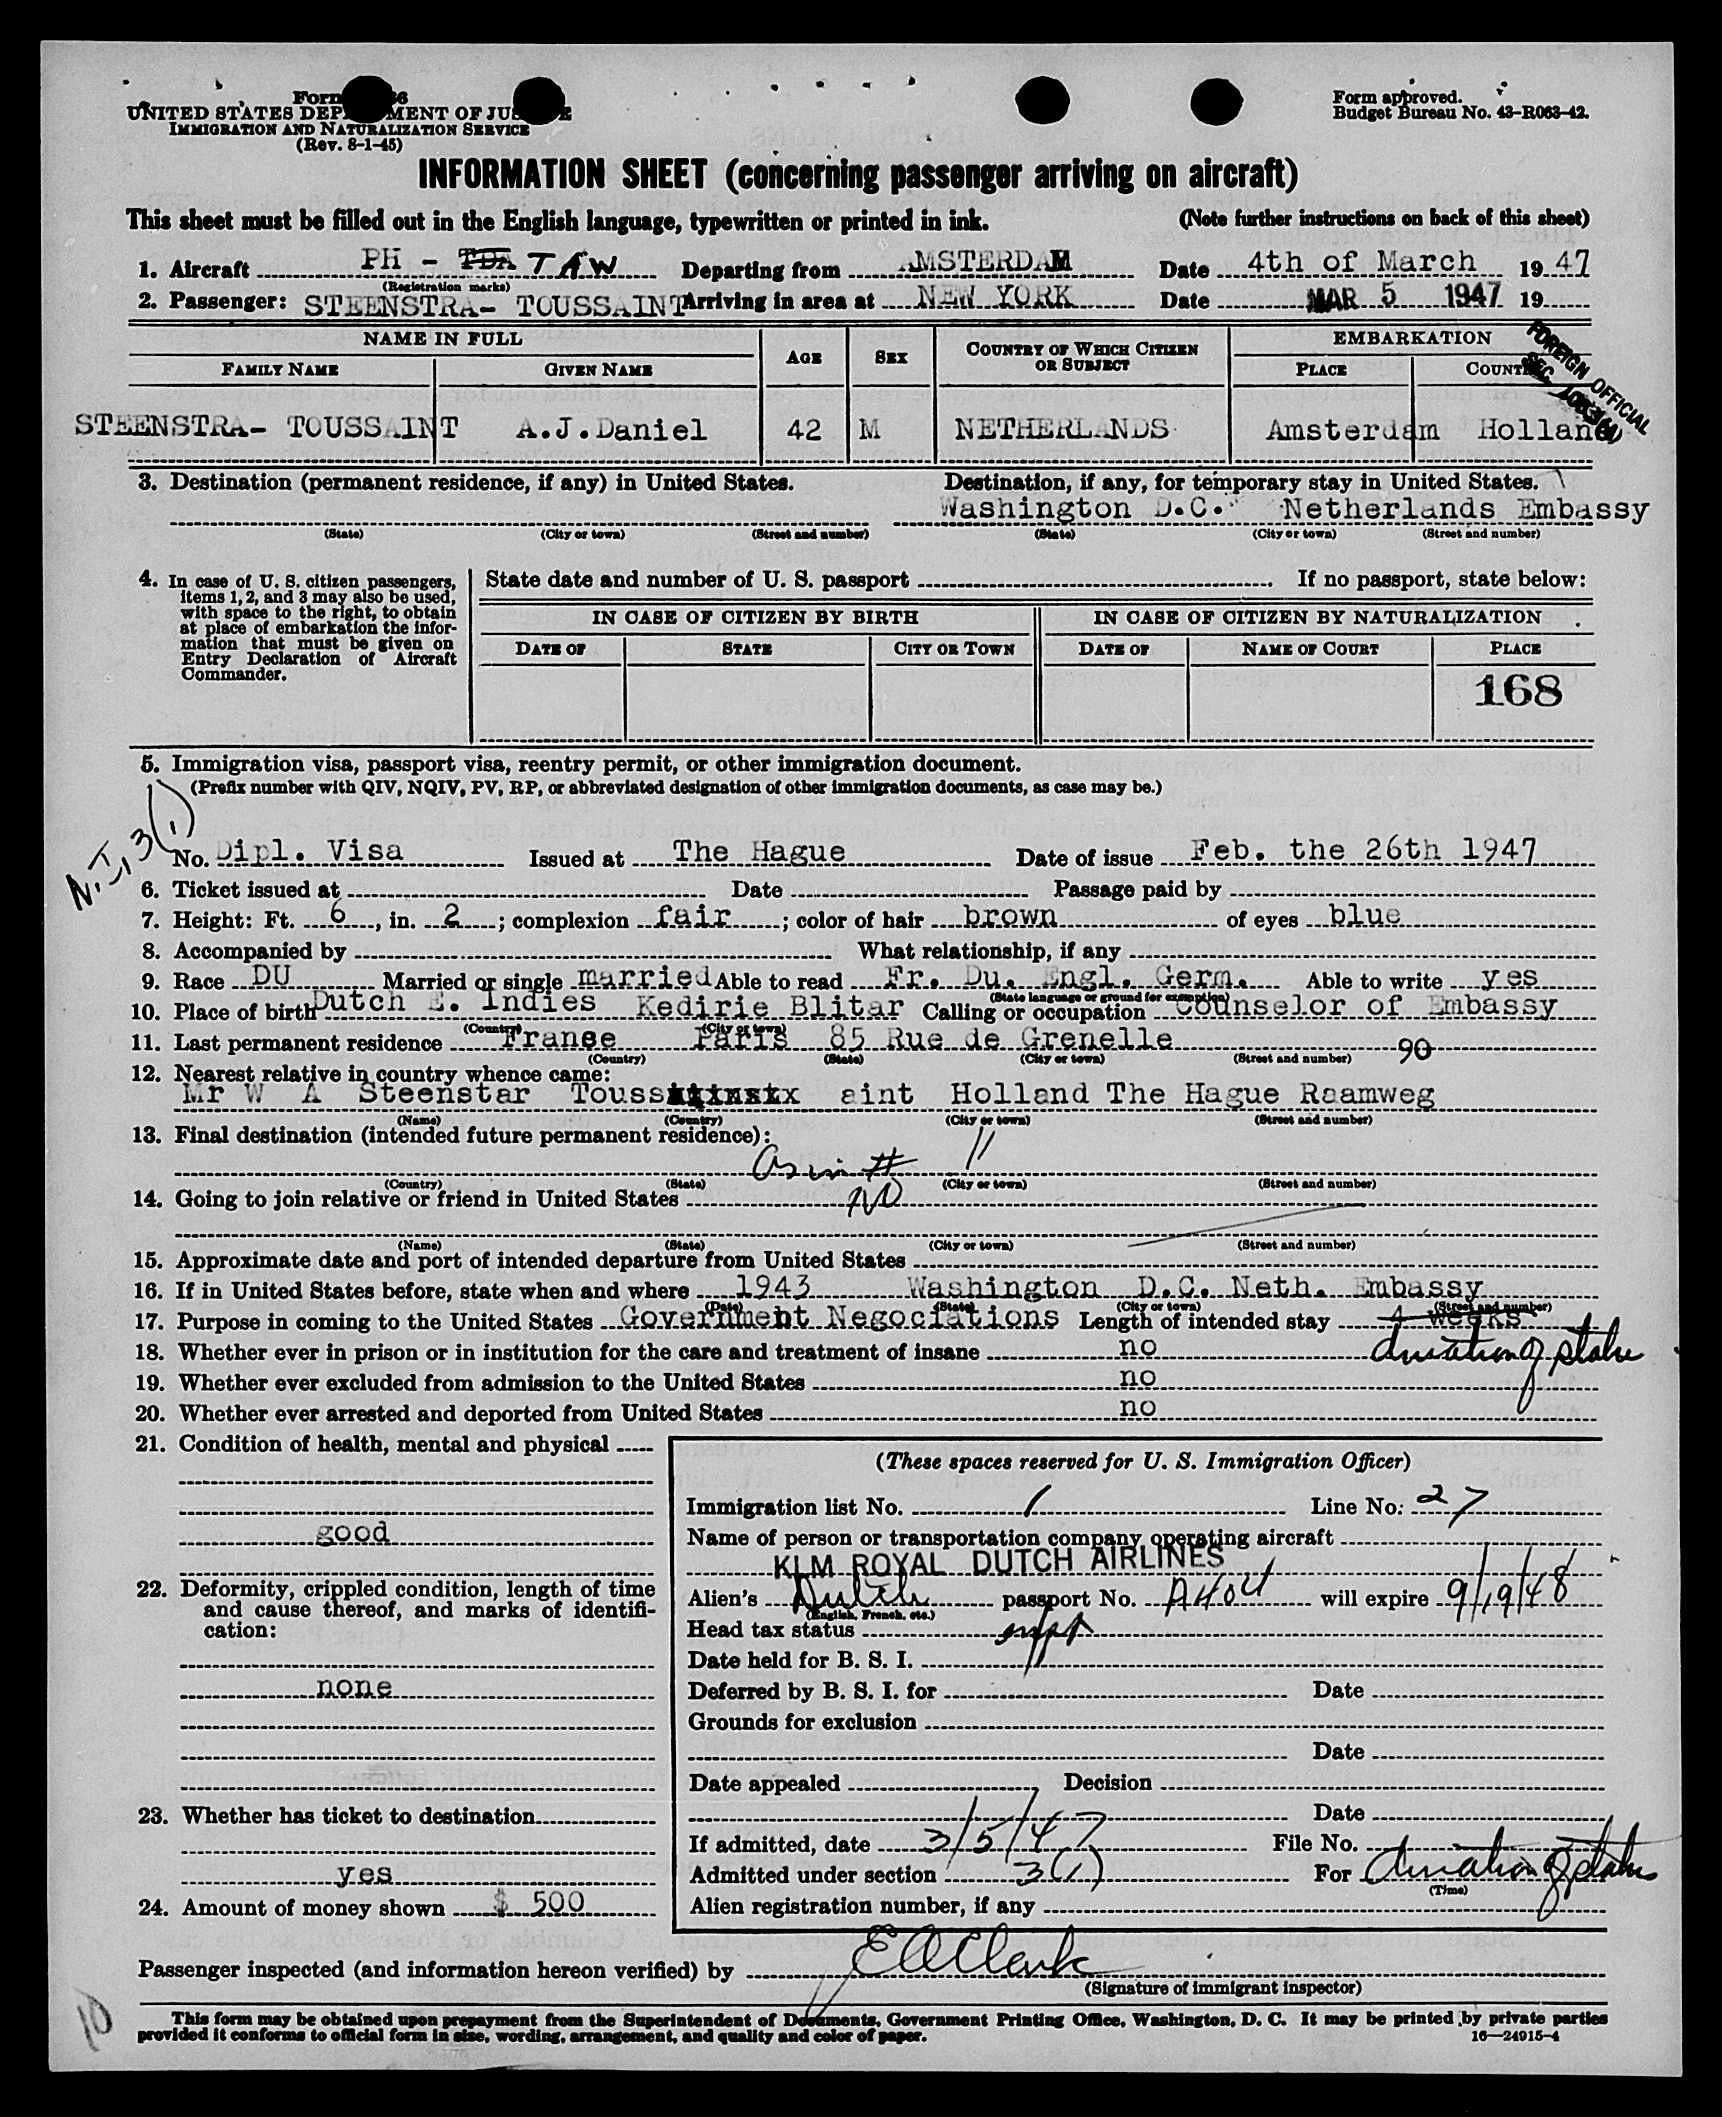 Form
UNITED STATES DEPARTMENT OF JUSTICE
IMMIGRATION AND NATURALIZATION SERVICE
(Rev. 8-1-45)
Form approved.
Budget Bureau No. 43-R063-42.
INFORMATION SHEET (concerning passenger arriving on aircraft)
This sheet must be filled out in the English language, typewritten or printed in ink. (Note further instructions on back of this sheet)
1. Aircraft PH - TDA TAW Departing from AMSTERDAM Date 4th of March 19 47
(Registration marks)
2. Passenger: STEENSTRA- TOUSSAINT Arriving in area at NEW YORK Date MAR 5 1947 19
NAME IN FULL AGE SEX COUNTRY OF WHICH CITIZEN OR SUBJECT EMBARKATION
FAMILY NAME GIVEN NAME PLACE COUNTRY
FOREIGN OFFICIAL
SEC.
STEENSTRA- TOUSSAINT A.J.Daniel 42 M NETHERLANDS Amsterdam Holland
3. Destination (permanent residence, if any) in United States. Destination, if any, for temporary stay in United States.
Washington D.C. Netherlands Embassy
(State) (City or town) (Street and number) (State) (City or town) (Street and number)
4. In case of U. S. citizen passengers, items 1, 2, and 3 may also be used, with space to the right, to obtain at place of embarkation the information that must be given on Entry Declaration of Aircraft Commander.
State date and number of U. S. passport If no passport, state below:
IN CASE OF CITIZEN BY BIRTH IN CASE OF CITIZEN BY NATURALIZATION
DATE OF STATE CITY OR TOWN DATE OF NAME OF COURT PLACE
168
5. Immigration visa, passport visa, reentry permit, or other immigration document.
(Prefix number with QIV, NQIV, PV, RP, or abbreviated designation of other immigration documents, as case may be.)
N.I, 3(1)
No. Dipl. Visa Issued at The Hague Date of issue Feb. the 26th 1947
6. Ticket issued at Date Passage paid by
7. Height: Ft. 6, in. 2; complexion fair; color of hair brown of eyes blue
8. Accompanied by What relationship, if any
9. Race DU Married or single married Able to read Fr. Du. Engl. Germ. Able to write yes
(State language or ground for exemption)
10. Place of birth Dutch E. Indies Kedirie Blitar Calling or occupation Counselor of Embassy
(Country) (City or town)
11. Last permanent residence France Paris 85 Rue de Grenelle
(Country) (State) (City or town) (Street and number) 90
12. Nearest relative in country whence came:
Mr W A Steenstar Touss aint Holland The Hague Raamweg
(Name) (Country) (City or town) (Street and number)
13. Final destination (intended future permanent residence):
as in # 11
(Country) (State) (City or town) (Street and number)
14. Going to join relative or friend in United States no
(Name) (State) (City or town) (Street and number)
15. Approximate date and port of intended departure from United States
16. If in United States before, state when and where 1943 Washington D.C. Neth. Embassy
(Date) (State) (City or town) (Street and number)
17. Purpose in coming to the United States Government Negociations Length of intended stay 4 weeks
duration of status
18. Whether ever in prison or in institution for the care and treatment of insane no
19. Whether ever excluded from admission to the United States no
20. Whether ever arrested and deported from United States no
21. Condition of health, mental and physical
good
22. Deformity, crippled condition, length of time and cause thereof, and marks of identification:
none
23. Whether has ticket to destination
yes
24. Amount of money shown $ 500
(These spaces reserved for U. S. Immigration Officer)
Immigration list No. 1 Line No. 27
Name of person or transportation company operating aircraft
KLM ROYAL DUTCH AIRLINES
Alien's Dutch passport No. A404 will expire 9/19/48
(English, French, etc.)
Head tax status
Date held for B. S. I.
Deferred by B. S. I. for Date
Grounds for exclusion
Date
Date appealed Decision
Date
If admitted, date 3/5/47 File No.
Admitted under section 3(1) For duration of status
(Time)
Alien registration number, if any
Passenger inspected (and information hereon verified) by E A Clark
(Signature of immigrant inspector)
10
This form may be obtained upon prepayment from the Superintendent of Documents, Government Printing Office, Washington, D. C. It may be printed by private parties
provided it conforms to official form in size, wording, arrangement, and quality and color of paper. 16—24915-4